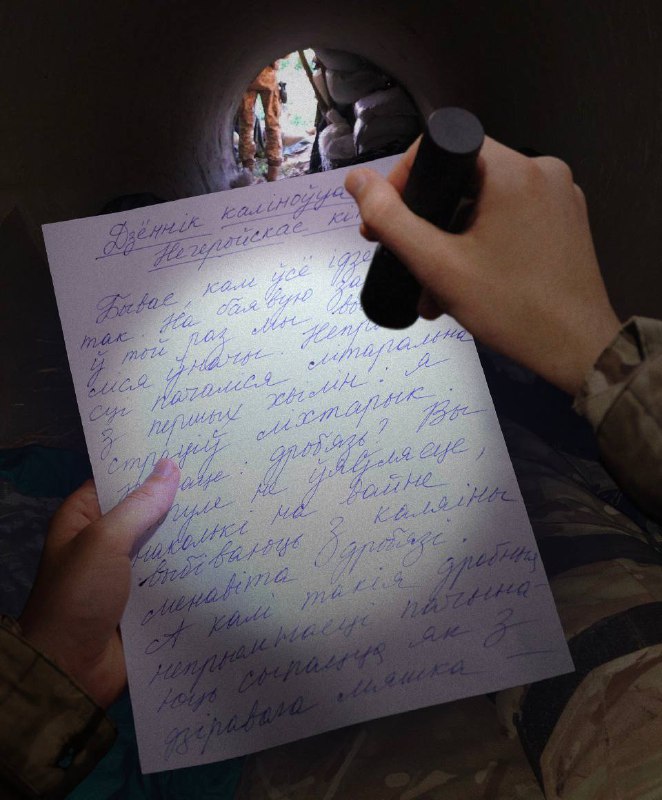 Дзённік каліноўца
Негеройскае
Бывае, калі ўсё ідзе
так. На баявую
ў той раз мы
ліся ўначы.
сці пачаліся літаральна
з першых хвілін: я
страціў ліхтарык.
дробязь? Вы
не ўяўляеце,
наколькі на вайне
выбіваюць з каляіны
менавіта дробязі.
А калі такія дробныя
непрыемнасці пачына-
юць сыпацца як з
дзіравага мяшка